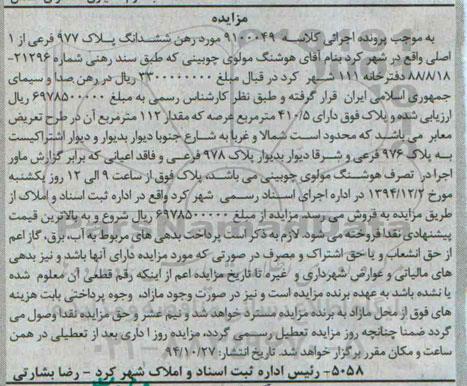 مزایده
به موجب پرونده اجرائی کلاسه ۹۱۰۰۰۴۹ مورد رهن ششدانگ پلاک ۹۷۷ فرعی از ۱
اصلی واقع در شهر کرد بنام آقای هوشنگ مولوی چوبینی که طبق سند رهنی شماره ۲۱۲۹۶-
۸۸۸/۱۸ دفترخانه ۱۱۱ شهر کرد در قبال مبلغ ۲۳۰۰۰۰۰۰۰۰ ریال در رهن صدا و سیمای
جمهوری اسلامی ایران قرار گرفته و طبق نظر کارشناس رسمی به مبلغ ۶۹۷۸۵۰۰۰۰۰ ریال
ارزیابی شده و پلاک فوق دارای ۴۱۰/۵ مترمربع عرصه که مقدار ۱۱۲ مترمربع آن در طرح تعریض
معابر می باشد که محدود است شمالا و غربا به شارع جنوبا دیوار بدیوار و دیوار اشتراکیست
به پلاک ۹۷۶ فرعی و شرقا دیوار بدیوار پلاک ۹۷۸ فرعی و فاقد اعیانی که برابر گزارش ماور
اجرا در تصرف هوشنگ مولوی چوبینی می باشد، پلاک فوق از ساعت ۹ الی ۱۲ روز یکشنبه
مورخ ۱۳۹۴/۱۲/۲ در اداره اجرای اسناد رسمی شهر کرد واقع در اداره ثبت اسناد و املاک از
طریق مزایده به فروش می رسد. مزایده از مبلغ ۶۹۷۸۵۰۰۰۰۰ ریال شروع و به بالاترین قیمت
پیشنهادی نقدا فروخته می شود. لازم به ذکر است پرداخت بدهی های مربوط به آب، برق، گاز اعم
از حق انشعاب و یا حق اشتراک و مصرف در صورتی که مورد مزایده دارای آنها باشد و نیز بدهی
های مالیاتی و عوارض شهرداری و غیره تا تاریخ مزایده اعم از اینکه رقم قطعی آن معلوم شده
یا نشده باشد به عهده برنده مزایده است و نیز در صورت وجود مازاد، وجوه پرداختی بابت هزینه
های فوق از محل مازاد به برنده مزایده مسترد خواهد شد و نیم عشر و حق مزایده نقدا وصول می
گردد ضمنا چنانچه روز مزایده تعطیل رسمی گردد، مزایده روز اداری بعد از تعطیلی در همن
ساعت و مکان مقرر برگزار خواهد شد. تاریخ انتشار: ۹۴/۱۰/۲۷
۵۰۵۸- رئیس اداره ثبت اسناد و املاک شهر کرد - رضا بشارتی